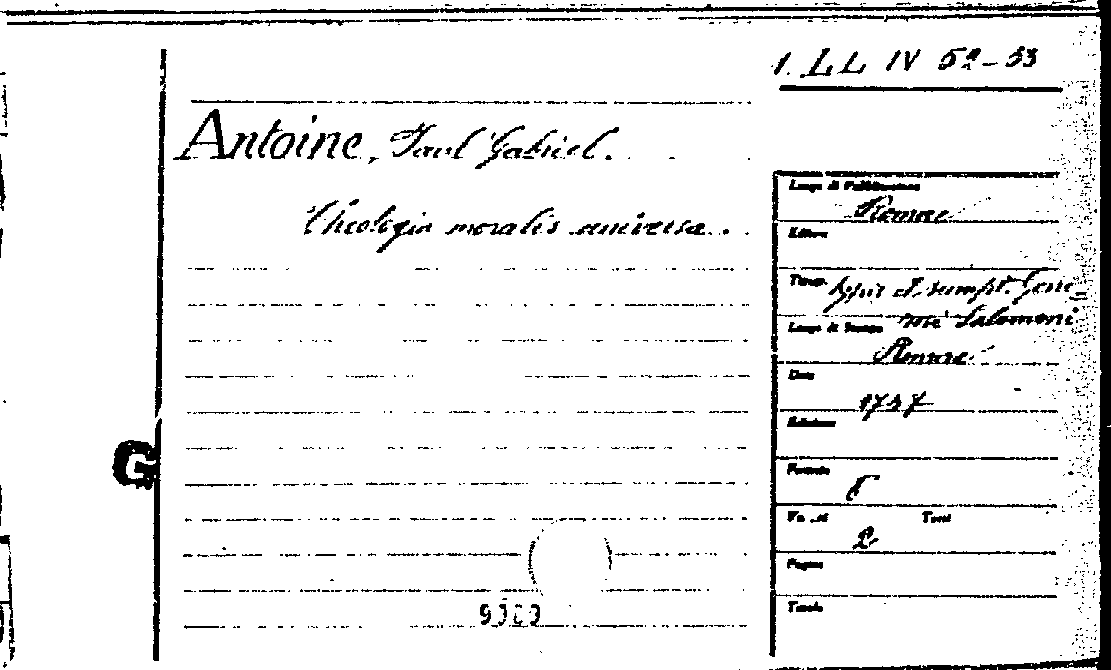 1. L L IV 52-53
Antoine, Paul Gabriel.
Theologia moralis universa.
Luogo di Pubblicazione
Romae
Editore
Tipogr. typis et sumpt. Gene-
Luogo di Stampa Salomoni
Romae
Data
1757
Edizione
Formato
Volumi Tomi
2
Pagine
Tavole
G